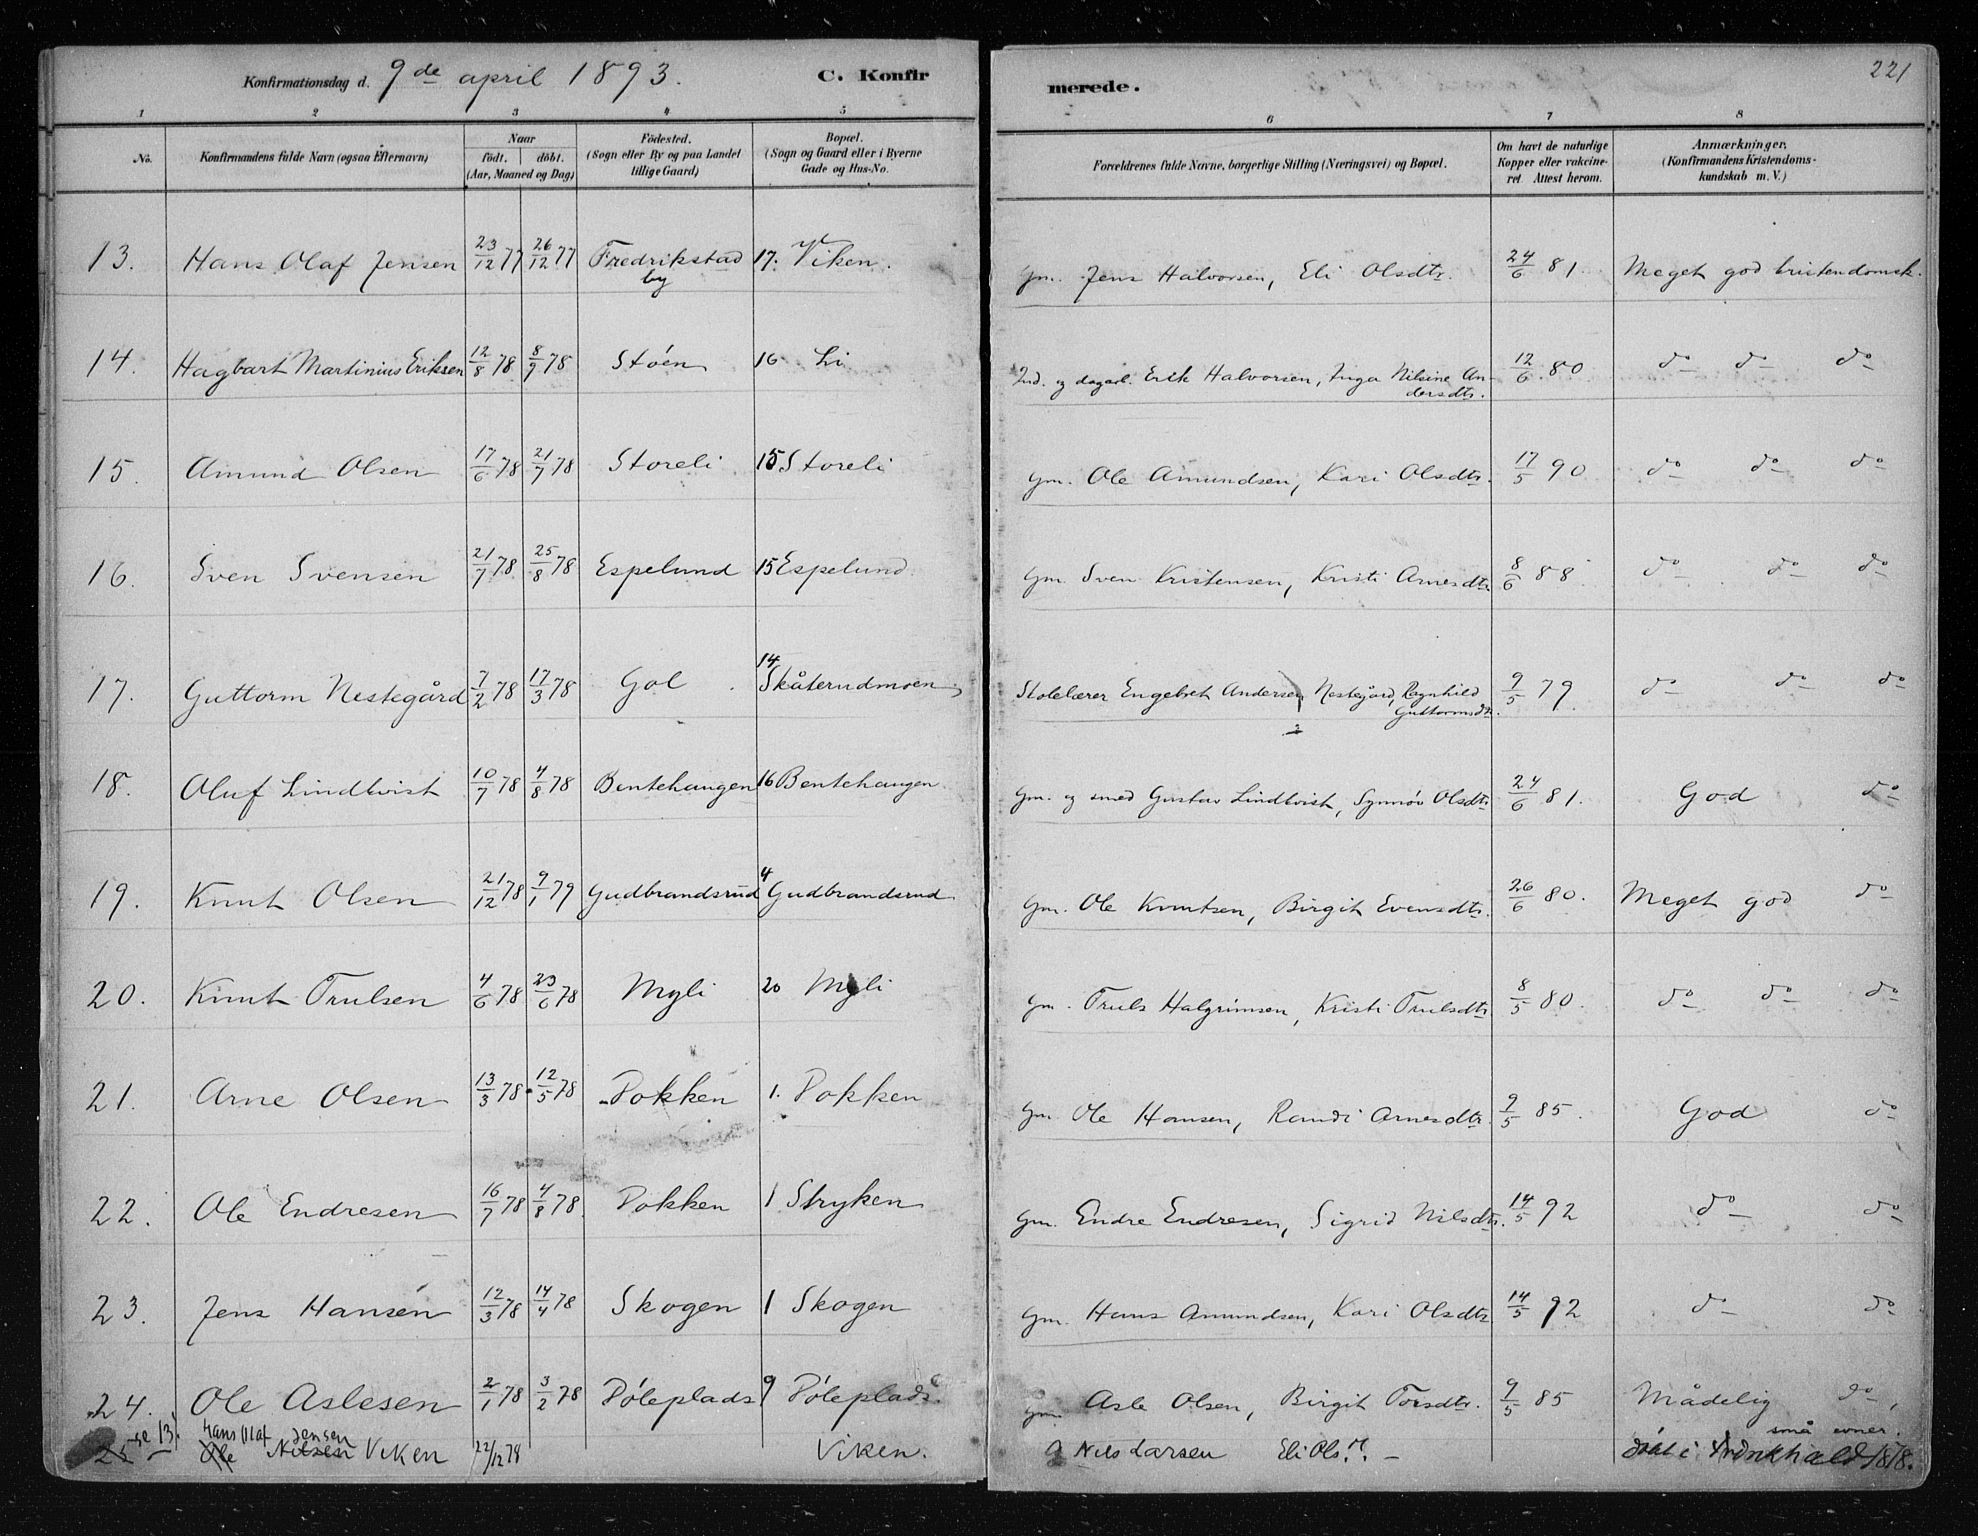 Konfirmationsdag d. 9de april 1893. C. Konfirmerede. 221
1 2 3 4 5 6 7 8
No. Konfirmandens fulde Navn (ogsaa Efternavn) Naar födt. döbt. (Aar, Maaned og Dag) Födested. (Sogn eller By og paa Landet tillige Gaard) Bopæl. (Sogn og Gaard eller i Byerne Gade og Hus-No. Forældrenes fulde Navne, borgerlige Stilling (Næringsvei) og Bopæl. Om havt de naturlige Kopper eller vakcineret. Attest herom. Anmærkninger. (Konfirmandens Kristendomskundskab m. V.)
13. Hans Olaf Jensen 23/12 77 26/12 77 Fredrikstad by 17. Viken. gm. Jens Halvorsen, Eli Olsdtr. 24/6 81. Meget god kristendomsk.
14. Hagbart Martinius Eriksen 12/8 78 8/9 78 Stöen 16 Li Ind. og dagarb. Erik Halvorsen, Inga Nilsine Andersdtr. 12/6 80 do do do
15. Amund Olsen 17/6 78 21/7 78 Storeli 15 Storeli gm. Ole Amundsen, Kari Olsdtr. 17/5 90 do do do
16. Sven Svensen 21/7 78 25/8 78 Espelund 15 Espelund gm. Sven Kristensen, Kristi Arnesdtr. 8/6 88 do do do
17. Guttorm Nestegård 7/2 78 17/3 78 Gol 14 Skåterudmoen, Skolelærer Engebret Andersen Nestegård, Ragnhild Guttormsdtr. 9/5 79. do do do
18. Oluf Lindkvist 10/7 78 4/8 78 Bentehaugen 16 Bentehaugen gm. og smed Gustav Lindkvist, Synnöv Olsdtr. 24/6 81. God do
19. Knut Olsen 21/12 78 9/1 79 Gudbrandsrud 4 Gudbrandsrud gm. Ole Knutsen, Birgit Evensdtr. 26/6 80. Meget god do
20. Knut Trulsen 4/6 78 23/6 78 Myli 20 Myli gm. Truls Halgrimsen, Kristi Trulsdtr. 8/5 80. do do do
21. Arne Olsen 13/3 78 12/5 78 Dokken 1. Dokken gm. Ole Hansen, Randi Arnesdtr. 9/5 85. God do
22. Ole Endresen 16/7 78 4/8 78. Dokken 1 Stryken gm. Endre Endresen, Sigrid Nilsdtr. 14/5 92 do do
23. Jens Hansen 12/3 78 14/4 78 Skogen 1 Skogen gm. Hans Amundsen, Kari Olsdtr. 14/5 92 do do
24. Ole Aslesen 2/1 78 3/2 78 Döleplads 9 Döleplads. gm. Asle Olsen, Birgit Torsdtr. 9/5 85 Mådelig do, små evner.
se 13! Hans Olaf Jensen
25 Ole Nilsen Viken 22/12 78 Viken. Nils Larsen Eli Ols. döbt i 1878.